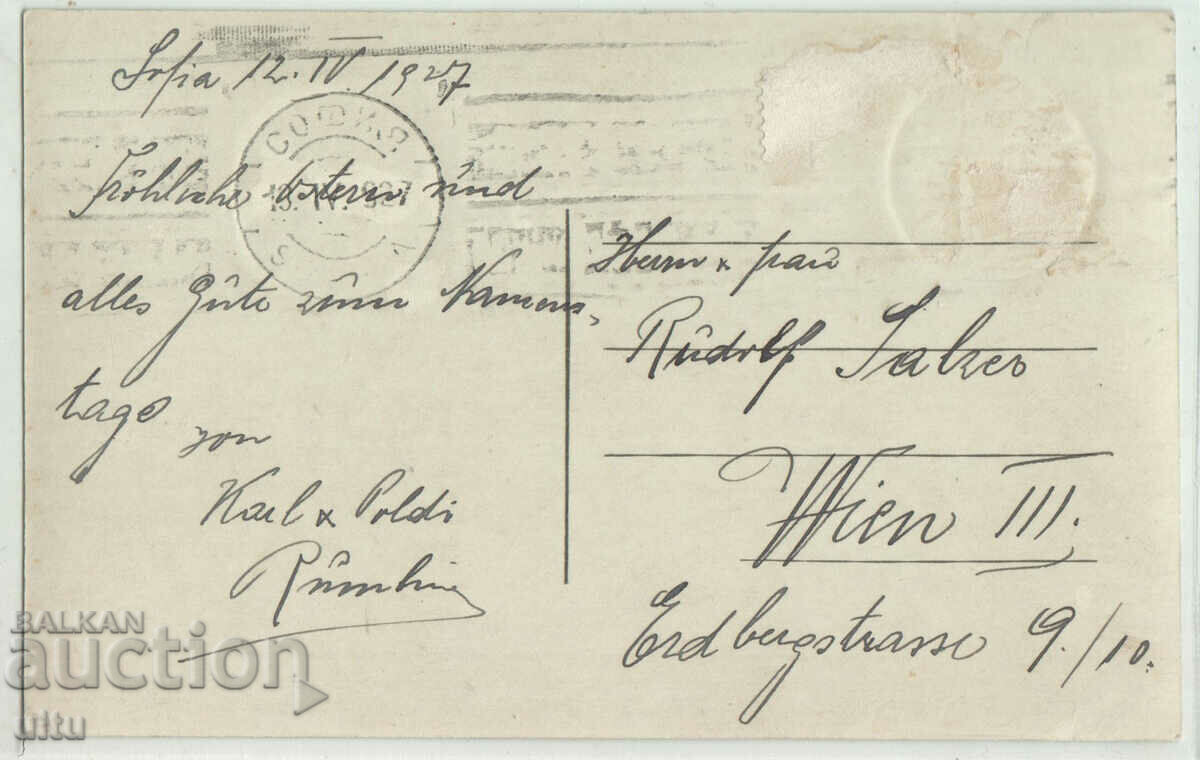 Sofia 12. IV. 1927
СОФИЯ
Fröhliche Ostern und
alles Gute zum Namens-
tage
von
Karl & Poldi
Herrn & Frau
Rudolf Salzer
Wien III.
Erdbergstrasse 9/10.
BALKAN
auction
ultu